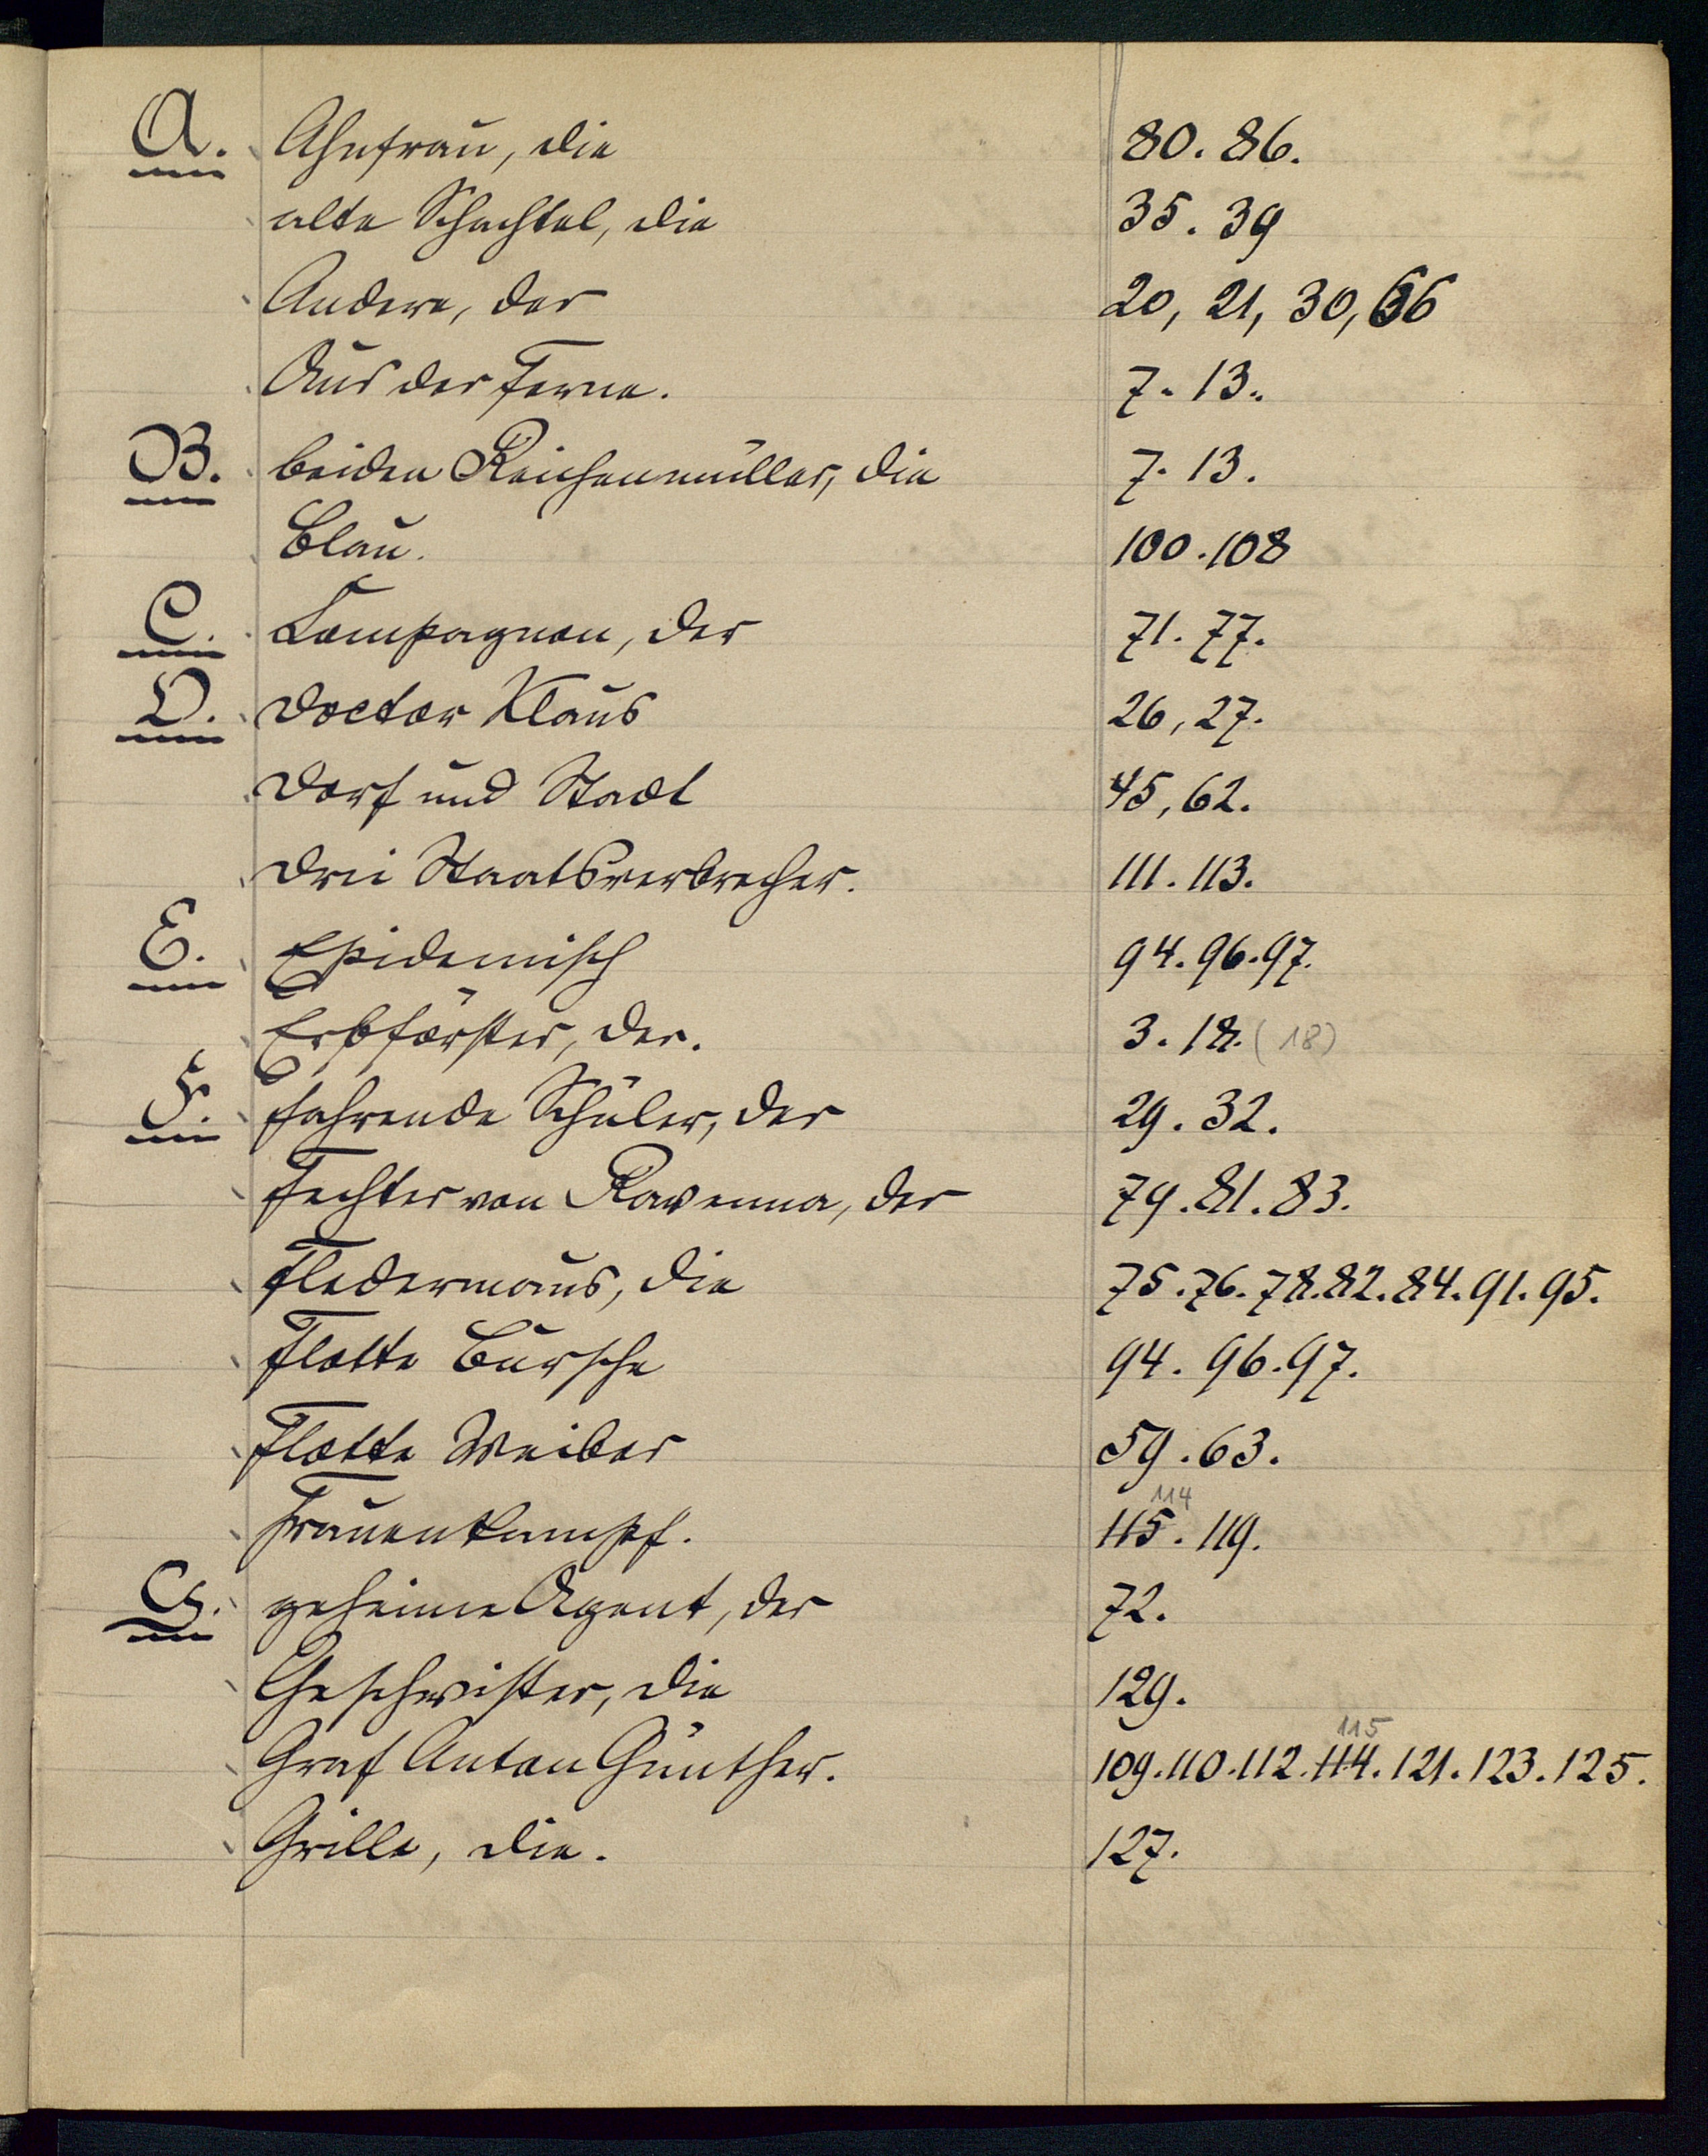 A. Ahnfrau, die 80. 86.
alte Schachtel, die 35. 39
Andere, der 20, 21, 30, 66
Aus der Ferne. 7. 13.
B. beiden Reichenmüller, die 7. 13.
Blau. 100. 108
C. Compagnon, der 71. 77.
D. Doctor Klaus 26, 27.
Dorf und Stadt 45, 62.
Drei Staatsverbrecher. 111. 113.
E. Epidemisch 94. 96. 97.
Erbförster, der. 3. 18. (18)
F. fahrende Schüler, der 29. 32.
Fechter von Ravenna, der 79. 81. 83.
Fledermaus, die 75. 76. 78. 82. 84. 91. 95.
Flotte Bursche 94. 96. 97.
Flotte Weiber 59. 63.
114
Frauenkampf. 115. 119.
G. geheime Agent, der 72.
Geschwister, die 129.
115
Graf Anton Günther. 109. 110. 112. 114. 121. 123. 125.
Grille, die. 127.